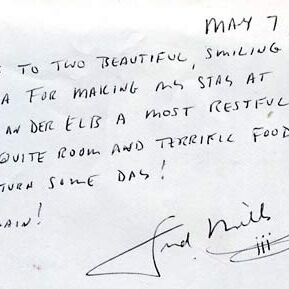 MAY 7
TO TWO BEAUTIFUL, SMILING
A FOR MAKING MY STAY AT
AN DER ELB A MOST RESTFUL
QUITE ROOM AND TERRIFIC FOOD
TURN SOME DAY!
AIN!